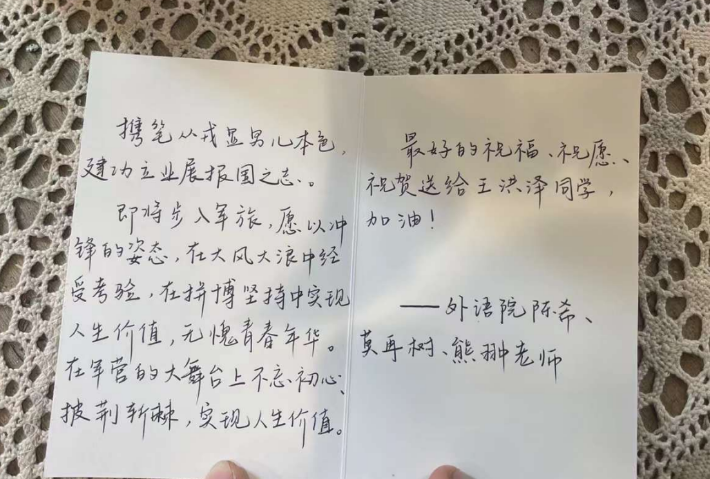 携笔从戎显男儿本色，
建功立业展报国之志。
即将步入军旅，愿以冲
锋的姿态，在大风大浪中经
受考验，在拼博坚持中实现
人生价值，无愧青春年华。
在军营的大舞台上不忘初心、
披荆斩棘，实现人生价值。
最好的祝福、祝愿、
祝贺送给王洪泽同学，
加油！
——外语院陈希、
莫再树、熊翀老师